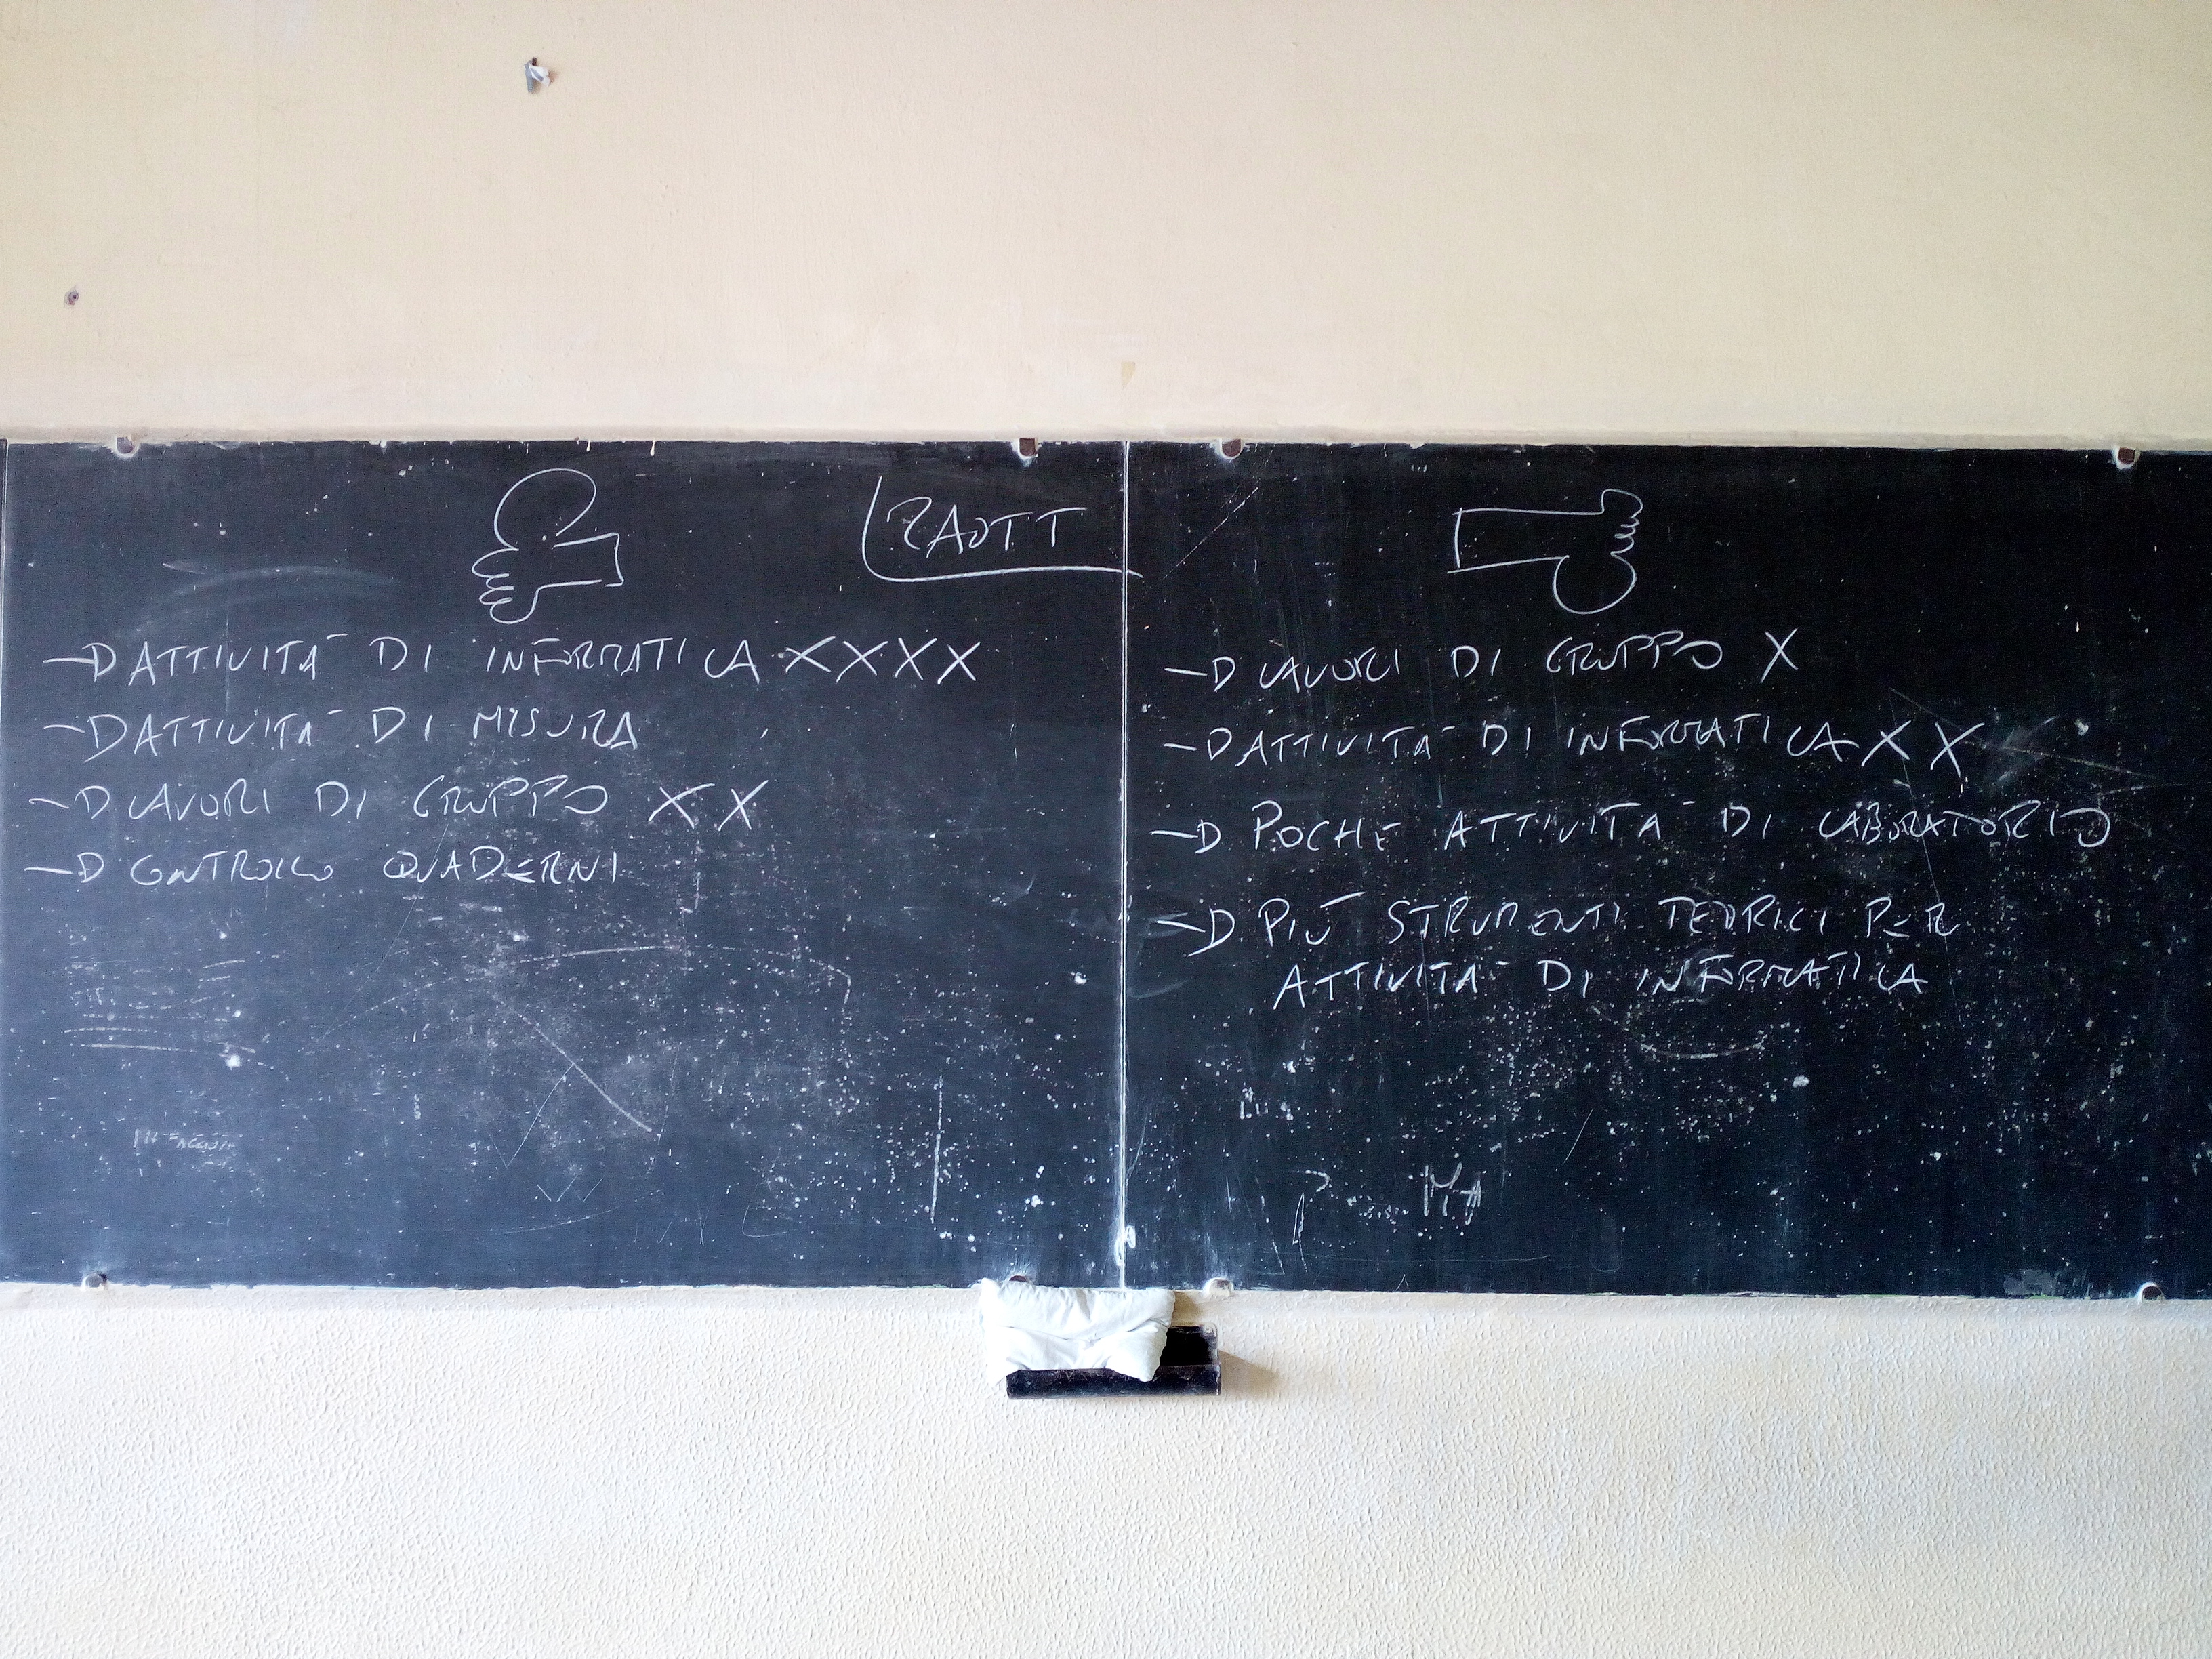 2AOTT
→ ATTIVITÀ DI INFORMATICA XXXX
→ ATTIVITÀ DI MISURA
→ LAVORI DI GRUPPO XX
→ CONTROLLO QUADERNI
→ LAVORI DI GRUPPO X
→ ATTIVITÀ DI INFORMATICA XX
→ POCHE ATTIVITÀ DI LABORATORIO
→ PIÙ STRUMENTI TEORICI PER
ATTIVITÀ DI INFORMATICA